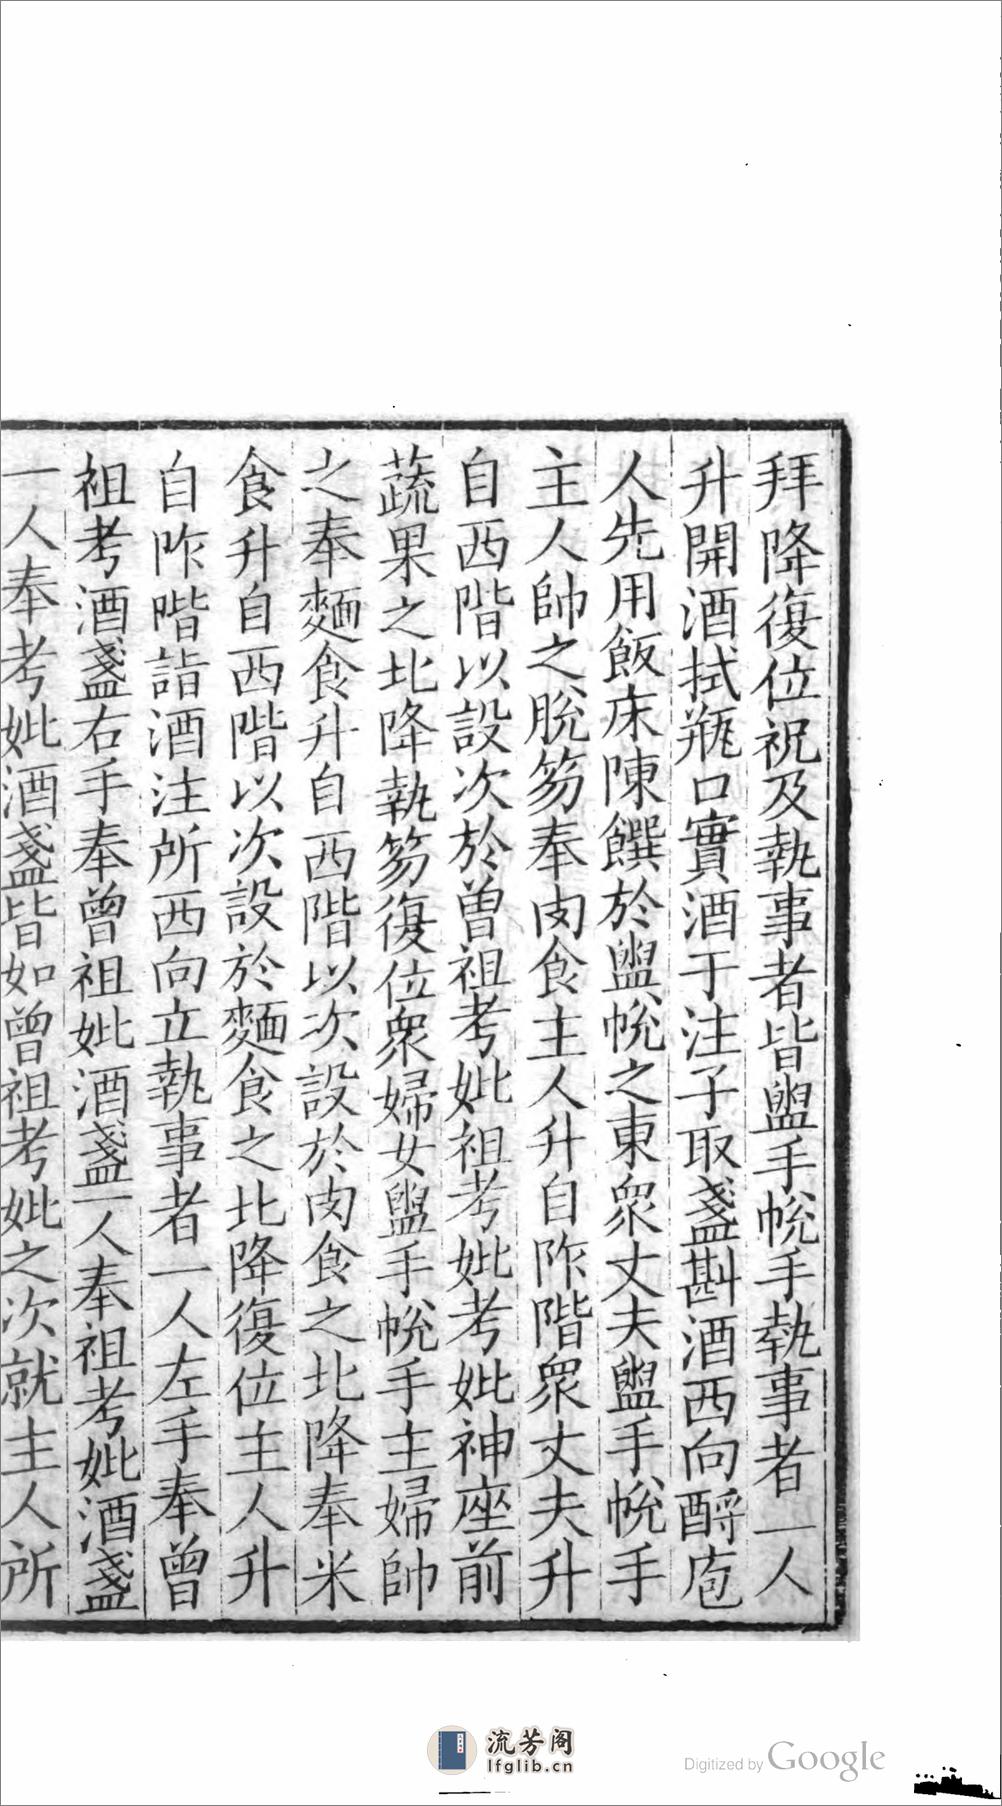 拜降復位祝及執事者皆盥手帨手執事者一人
升開酒拭瓶口實酒于注子取盞斟酒西向酹庖
人先用飯床陳饌於盥帨之東衆丈夫盥手帨手
主人帥之脫笏奉肉食主人升自阼階衆丈夫升
自西階以設次於曽祖考妣祖考妣考妣神座前
蔬果之北降執笏復位衆婦女盥手帨手主婦帥
之奉麵食升自西階以次設於肉食之北降奉米
食升自西階以次設於麵食之北降復位主人升
自阼階詣酒注所西向立執事者一人左手奉曾
祖考酒盞右手奉曾祖妣酒盞一人奉祖考妣酒盞
一人奉考妣酒盞皆如曾祖考妣之次就主人所
流芳阁
lfglib.cn
Digitized by Google